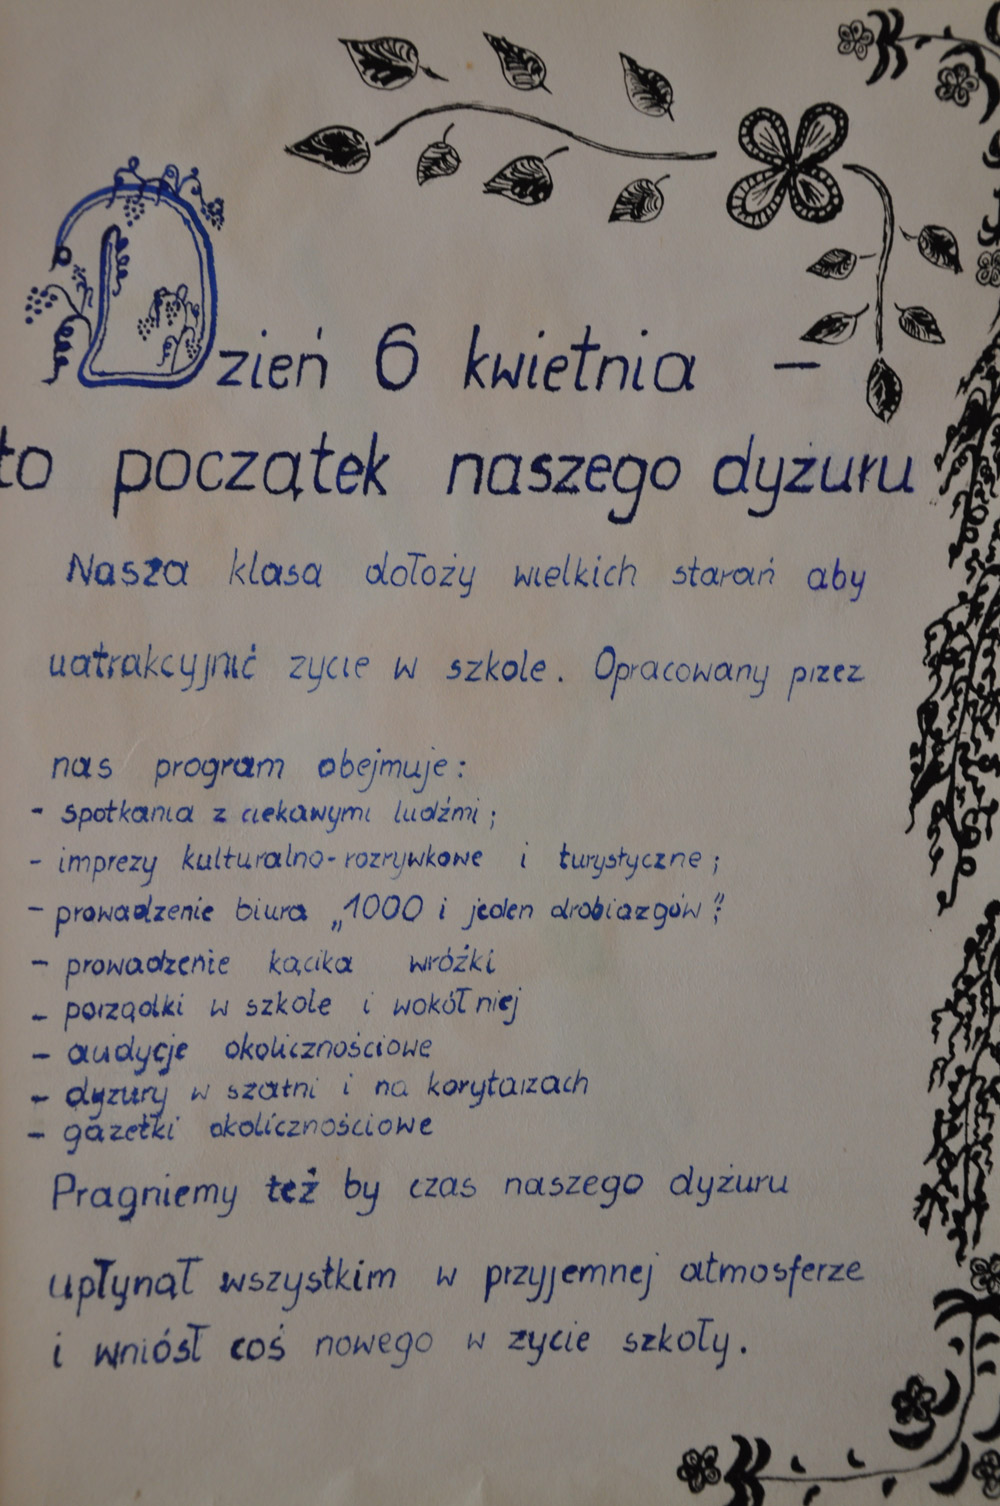 Dzień 6 kwietnia –
to początek naszego dyżuru
Nasza klasa dołoży wielkich starań aby
uatrakcyjnić zycie w szkole. Opracowany przez
nas program obejmuje:
- spotkania z ciekawymi ludźmi;
- imprezy kulturalno-rozrywkowe i turystyczne;
- prowadzenie biura „1000 i jeden drobiazgów";
- prowadzenie kącika wróżki
- porządki w szkole i wokół niej
- audycje okolicznościowe
- dyzury w szatni i na korytarzach
- gazetki okolicznościowe
Pragniemy też by czas naszego dyżuru
upłynął wszystkim w przyjemnej atmosferze
i wniósł coś nowego w zycie szkoły.